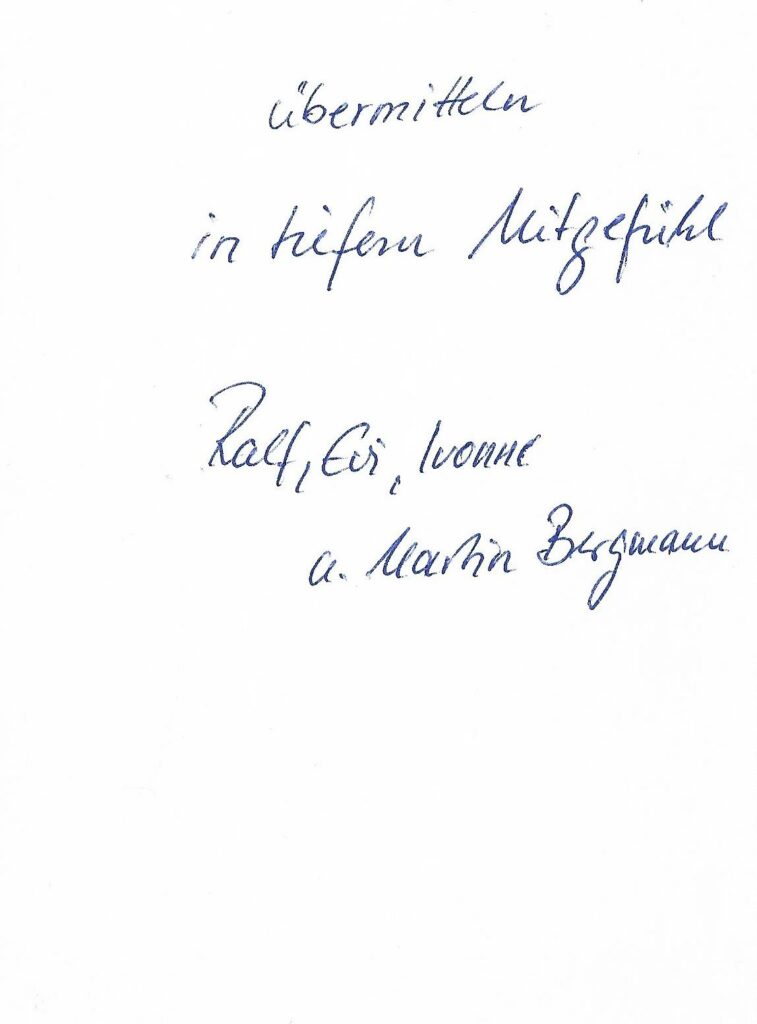 übermitteln
in tiefem Mitgefühl
Ralf, Evi, Ivonne
u. Martin Bergmann